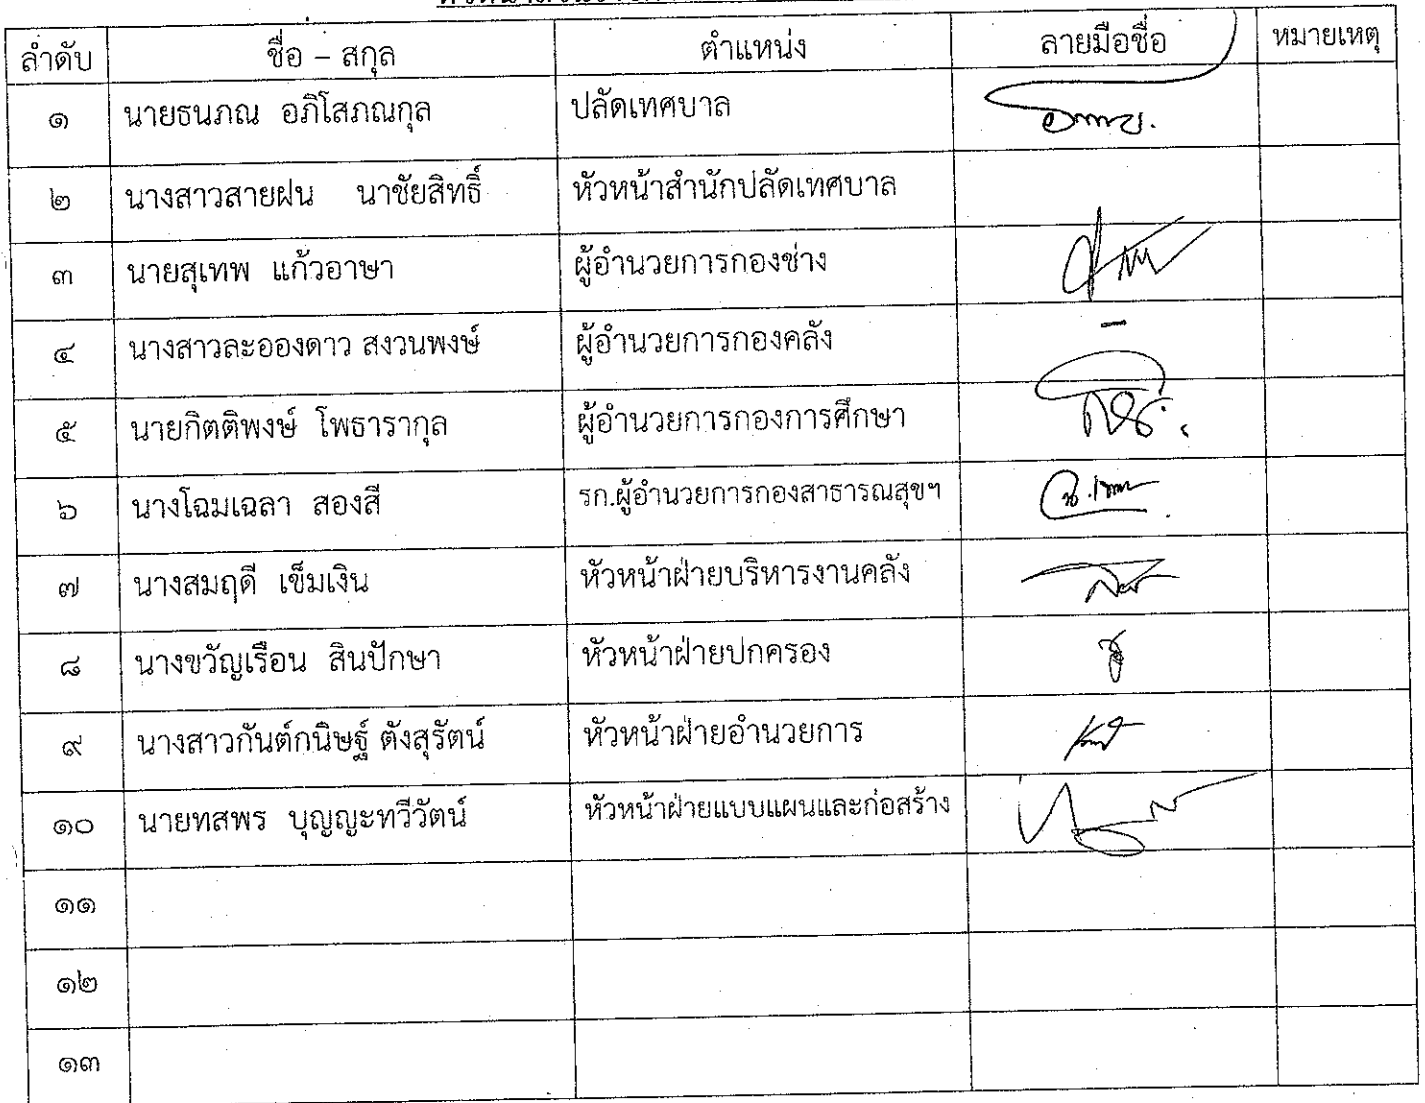 ลำดับ ชื่อ – สกุล ตำแหน่ง ลายมือชื่อ หมายเหตุ
๑ นายธนภณ อภิโสภณกุล ปลัดเทศบาล
๒ นางสาวสายฝน นาชัยสิทธิ์ หัวหน้าสำนักปลัดเทศบาล
๓ นายสุเทพ แก้วอาษา ผู้อำนวยการกองช่าง
๔ นางสาวละอองดาว สงวนพงษ์ ผู้อำนวยการกองคลัง –
๕ นายกิตติพงษ์ โพธารากุล ผู้อำนวยการกองการศึกษา
๖ นางโฉมเฉลา สองสี รก.ผู้อำนวยการกองสาธารณสุขฯ
๗ นางสมฤดี เข็มเงิน หัวหน้าฝ่ายบริหารงานคลัง
๘ นางขวัญเรือน สินปักษา หัวหน้าฝ่ายปกครอง
๙ นางสาวกันต์กนิษฐ์ ตังสุรัตน์ หัวหน้าฝ่ายอำนวยการ
๑๐ นายทสพร บุญญะทวีวัตน์ หัวหน้าฝ่ายแบบแผนและก่อสร้าง
๑๑
๑๒
๑๓